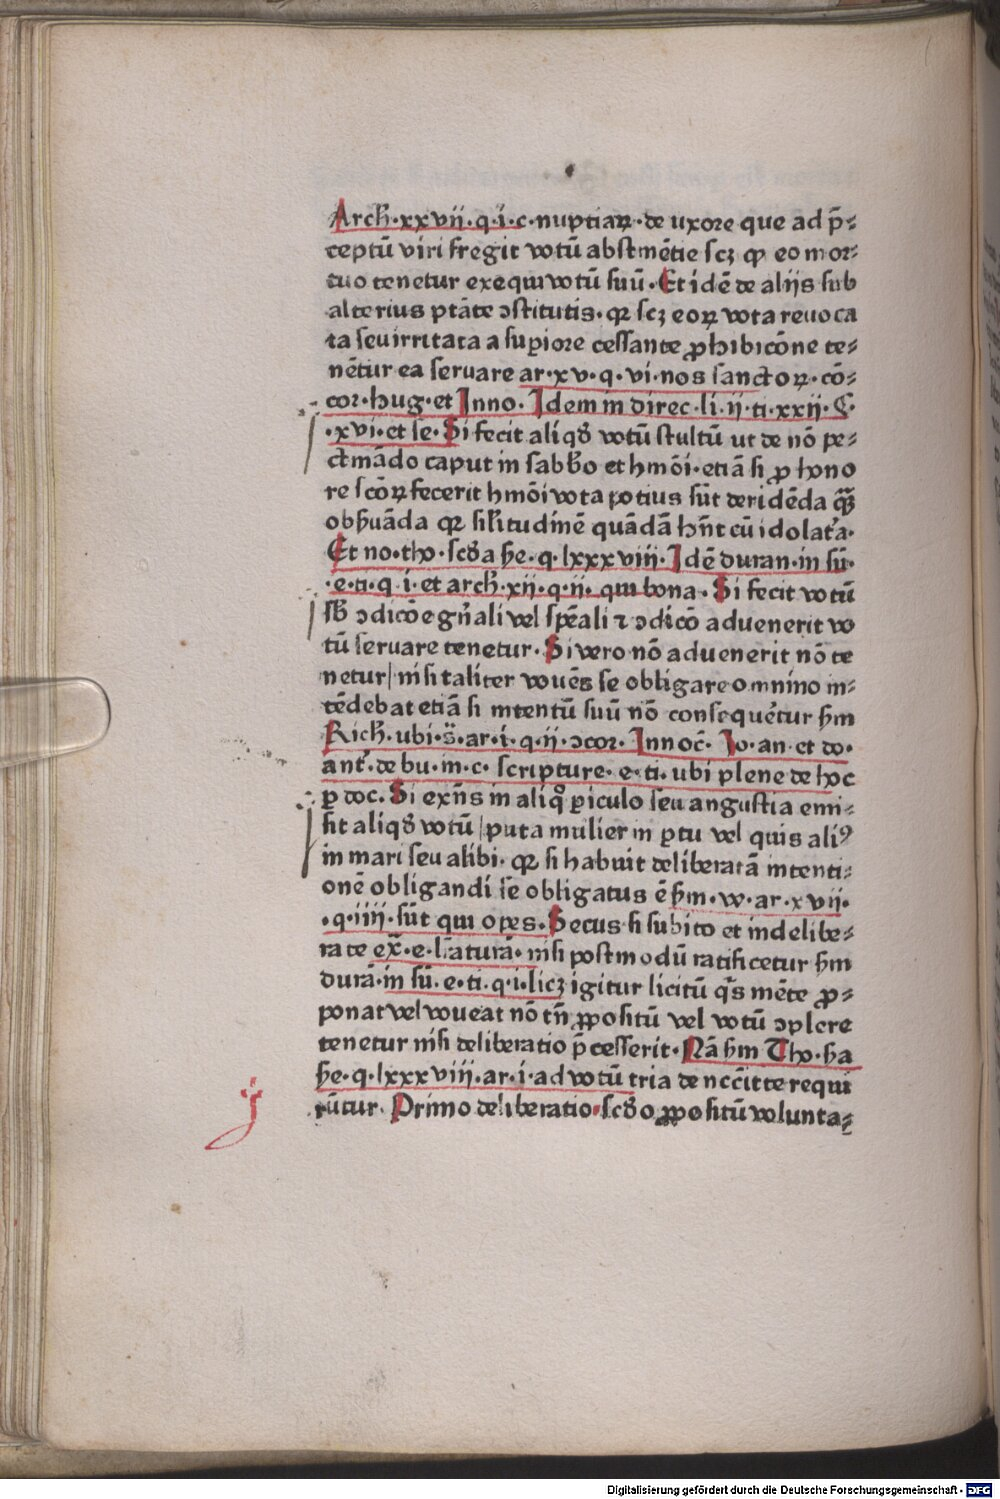 Arch̄·xxvij·q·i·c·nuptiaꝝ·de uxore que ad p̄⸗
ceptū viri fregit votū abstinētie scꝫ ꝙ eo mor⸗
tuo tenetur exequi votū suū·Et idē de aliis sub
alterius ptāte ↄstitutis·qꝛ scꝫ eoꝝ vota reuoca
ta seu irritata a supiore cessante ꝓhibicōne te⸗
nētur ea seruare ar·xv·q·vi·nos sanctoꝝ·cō⸗
cor·hug·et Inno·Idem in direc·li·ij·ti·xxij·C·
·xvi·et se·Si fecit aliqđ votū stultū ut de nō pe⸗
ctinādo caput in sabb̄o et hmōi·etiā si ꝓ hono
re scōꝝ fecerit hmōi vota potius sūt deridēda qͣꝫ
obẜuāda qꝛ sil̄itudinē quādā hn̄t cū idolat̄a·
Et no·tho·scđa ẜe·q·lxxxviii·Idē duran·in sū·
·e·ti·q·i·et arch̄·xij·q·ij·qui bona·Si fecit votū
sb̄ ↄdicōe gn̄ali vel spēali ⁊ ↄdicō aduenerit vo
tū seruare tenetur·Si vero nō aduenerit nō te
netur|nisi taliter vouēs se obligare omnino in⸗
tēdebat etiā si intentū suū nō consequētur ẜm
Rich̄·ubi·s̄·ar·i·q·ij·ↄcor·Innoc̄·Io·an·et do·
ant̄·de bu·in·c·scripture·e·ti·ubi plene de hoc
ꝑ doc·Si exn̄s in aliqͦ ꝑiculo seu angustia emi⸗
sit aliqđ votū|puta mulier in ꝑtu vel quis aliꝰ
in mari seu alibi·qꝛ si habuit deliberatā intenti⸗
onē obligandi se obligatus ē ẜm·w·ar·xvij·
·q·iiij·sūt qui opes·Secus si subito et indelibe⸗
rate ex̄·e·l̄aturā·nisi postmodū ratificetur ẜm
durā·in sū·e·ti·q·i·licꝫ igitur licitū qͥs mēte ꝓ⸗
ponat vel voueat nō tn̄ ꝓpositū vel votū ↄplere
tenetur nisi deliberatio p̄cesserit·Nā ẜm Tho·ẜa
ẜe·q·lxxxviij·ar·i·ad votū tria de nccītte requi
rūtur·Primo deliberatio·scđo ꝓpositū volunta⸗
Digitalisierung gefördert durch die Deutsche Forschungsgemeinschaft - DFG